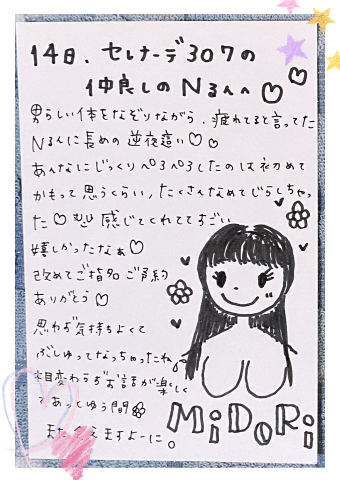 14日、セレナーデ307の
仲良しのNさんへ♡♡
男らしい体をなぞりながら、疲れてると言ってた
Nさんに長めの逆夜這い♡♡
あんなにじっくりペロペロしたのは初めて
かもって思うくらい、たくさんなめてじらしちゃっ
た♡ 感じてくれててすごい
嬉しかったなぁ♡
改めてご指名ご予約
ありがとう♡
思わず気持ちよくて
ぶしゅってなっちゃったね
相変わらずお話が楽しく
てあっとゆう間
また会えますよーに。
MiDORi